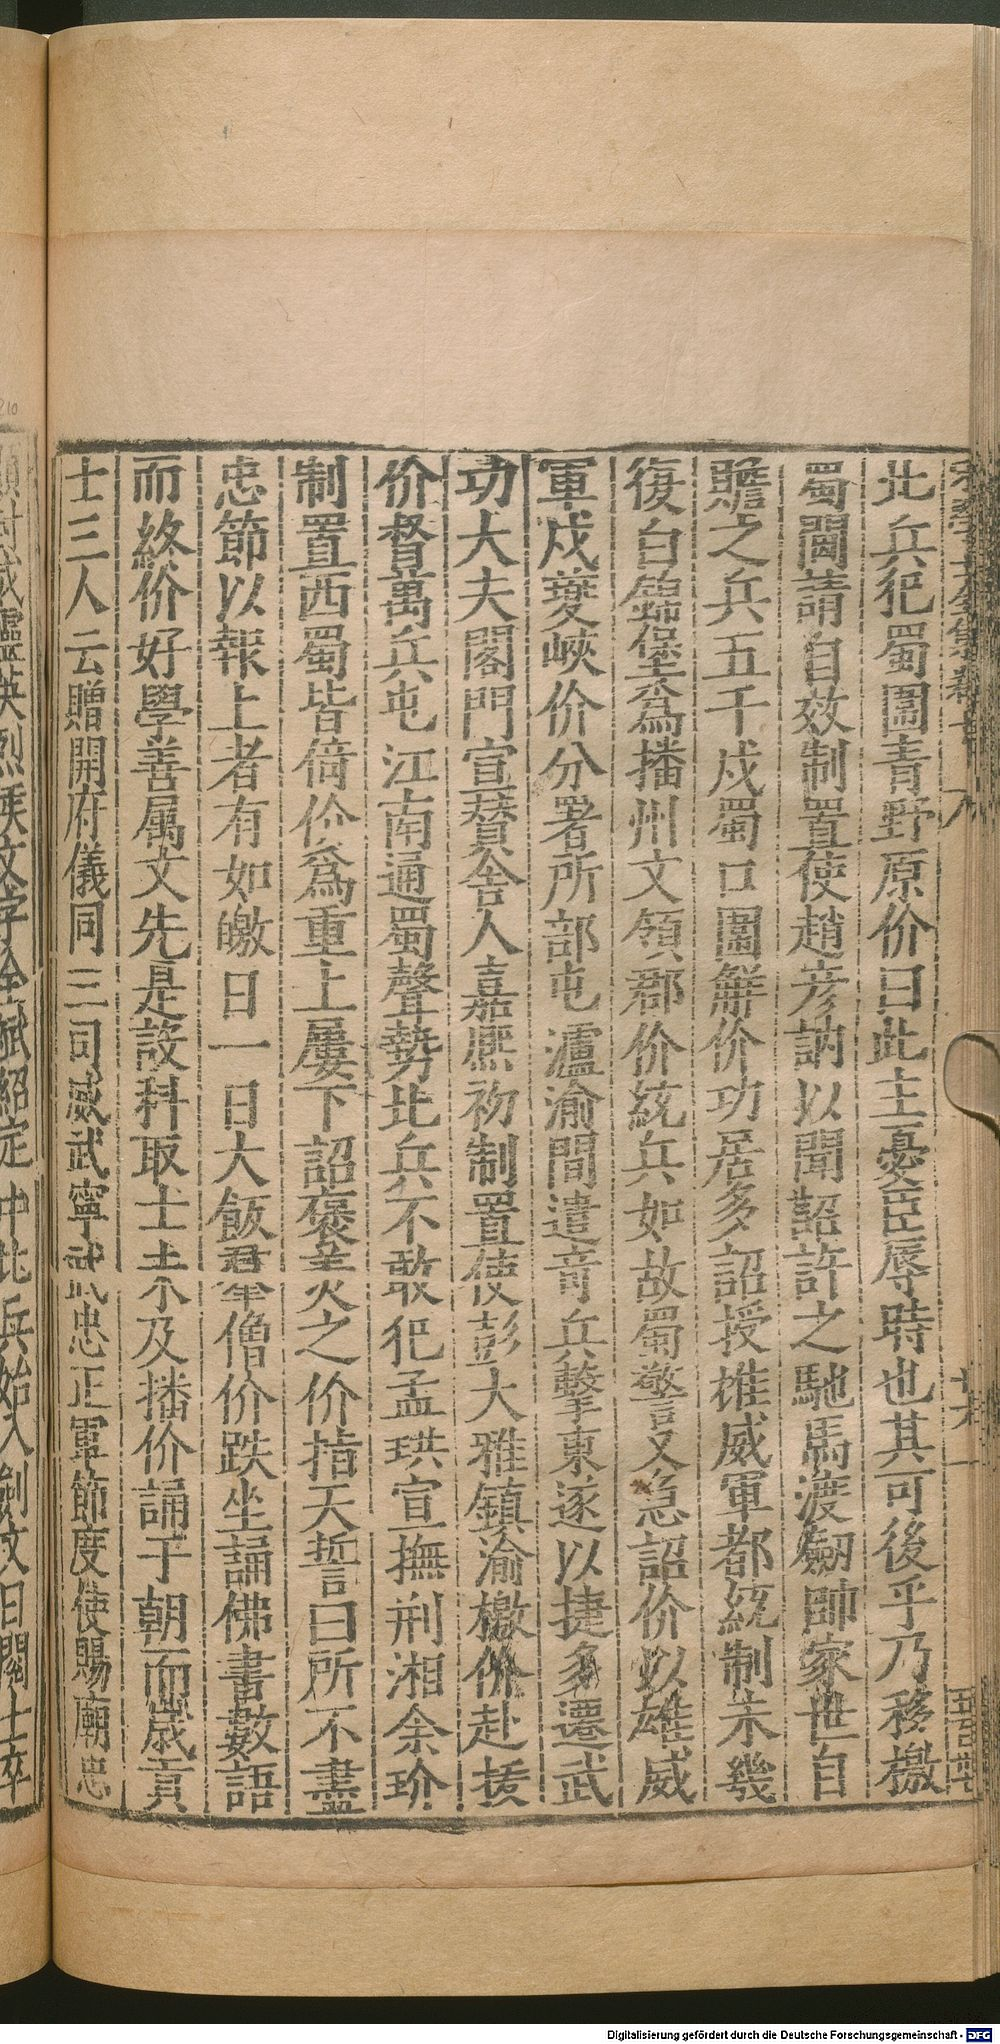 北兵犯蜀圍青野原价曰此主憂臣辱時也其可後乎乃移檄
蜀閫請自效制置使趙彥訥以聞詔許之馳馬渡劒帥家世自
贍之兵五千戍蜀口圍解价功居多詔授雄威軍都統制未幾
復自錦堡爲播州文領郡价統兵如故蜀警又急詔价以雄威
軍戍夔峽价分署所部屯瀘渝間遣奇兵擊東遂以捷多遷武
功大夫閤門宣贊舍人嘉熈初制置使彭大雅鎮渝檄价赴援
价督萬兵屯江南通蜀聲勢北兵不敢犯孟珙宣撫荆湘余玠
制置西蜀皆倚价爲重上屢下詔褒美之价指天誓曰所不盡
忠節以報上者有如皦日一日大飯羣僧价跌坐誦佛書數語
而終价好學善属文先是設科取士未及播价請于朝而歲貢
士三人云贈開府儀同三司威武寧武忠正軍節度使賜廟忠
顯封威靈英烈侯文字全賦紹定中北兵始入劍文曰關士卒
Digitalisierung gefördert durch die Deutsche Forschungsgemeinschaft - DFG